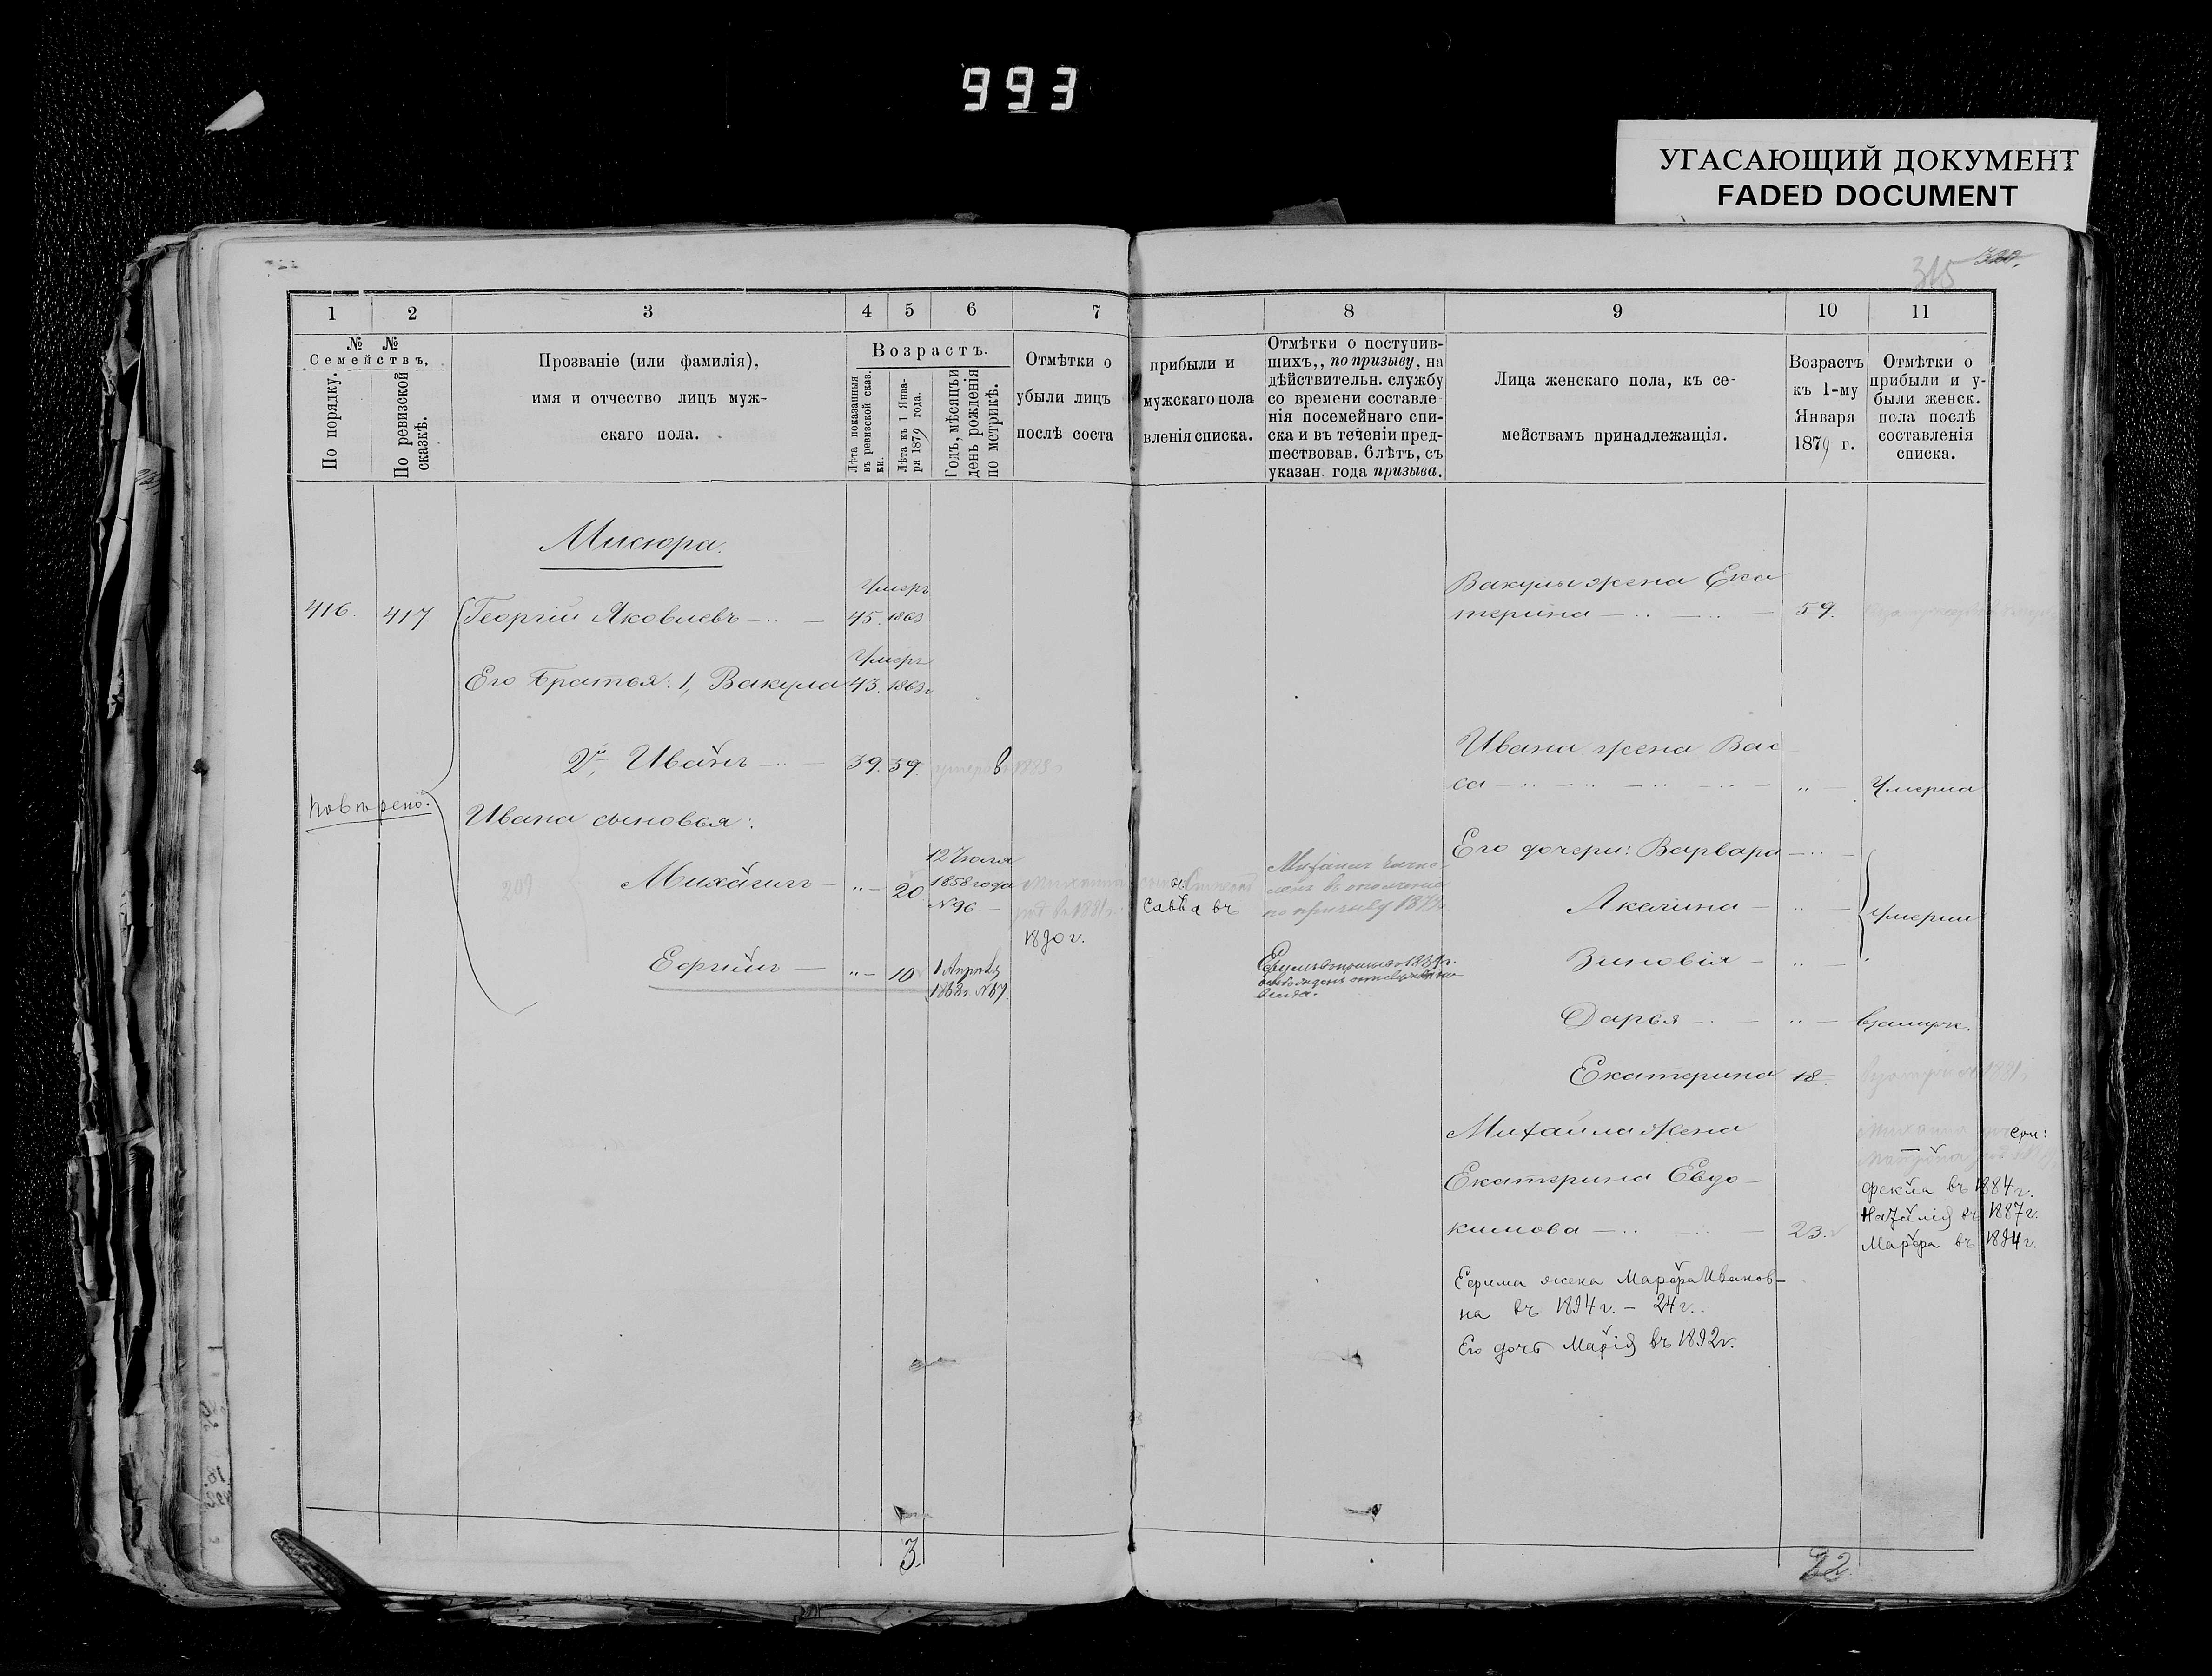 993
УГАСАЮЩИЙ ДОКУМЕНТ
FADED DOCUMENT
315 320.
1 2 3 4 5 6 7 8 9 10 11
№ № Семействъ.
По порядку.
По ревизской сказкѣ.
Прозваніе (или фамилія),
имя и отчество лицъ муж-
скаго пола.
Возрастъ.
Лѣта показанныя
въ ревизской сказ.
ки.
Лѣта къ 1 Янва-
ря 1879 года.
Годъ, мѣсяцъ и
день рожденія
по метрикѣ.
Отмѣтки о прибыли и
убыли лицъ мужскаго пола
послѣ соста вленія списка.
Отмѣтки о поступив-
шихъ,, по призыву, на
дѣйствительн. службу
со времени составле
нія посемейнаго спи-
ска и въ теченіи пред-
шествовав. 6 лѣтъ, съ
указан. года призыва.
Лица женскаго пола, къ се-
мействамъ принадлежащія.
Возрастъ
къ 1-му
Января
1879 г.
Отмѣтки о
прибыли и у-
были женск.
пола послѣ
составленія
списка.
Мисюра.
416. 417
Георгій Яковлевъ
45. Умеръ 1863
Его братья: 1, Вакула
43. Умеръ 1863г
2й, Иванъ
39. 59. умеръ въ
Повѣрено.
Ивана сыновья:
209
Михаилъ „ 20
12 Іюля
1858 года
№ 96.
сынъ:
Савва въ
1890 г.
по призыву 1879
Ефимъ „ 10
1 Апрѣля
1868г №69.
Вакулы жена Ека
терина 59.
Ивана жена Вас
са „ Умерла
Его дочери: Варвара
Акилина „ Умерли
Зиновія „
Дарья „ Взамуж.
Екатерина 18.
Михаила жена
Екатерина Евдо-
кимова 23.
Фекла въ 1884 г.
Наталія въ 1887 г.
Марфа въ 1894 г.
Ефима жена Марфа Иванов-
на въ 1894 г. – 24 г.
Его дочь Марія въ 1892 г.
3.
22